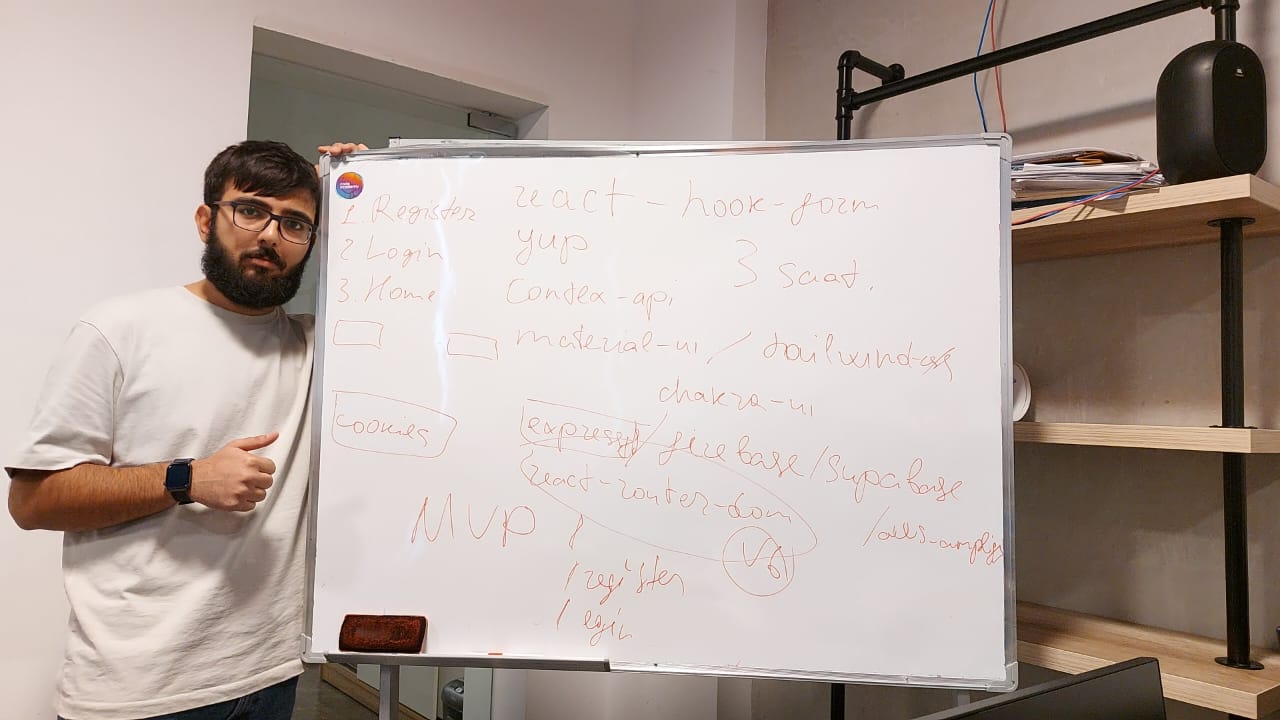 1. Register
2 Login
3. Home
cookies
react-hook-form
yup
3 saat.
contex-api
material-ui / tailwind-css
chakra-ui
express / firebase / supabase
/aws-amplify
react-router-dom
v6
MVP /
/register
/login
JBL